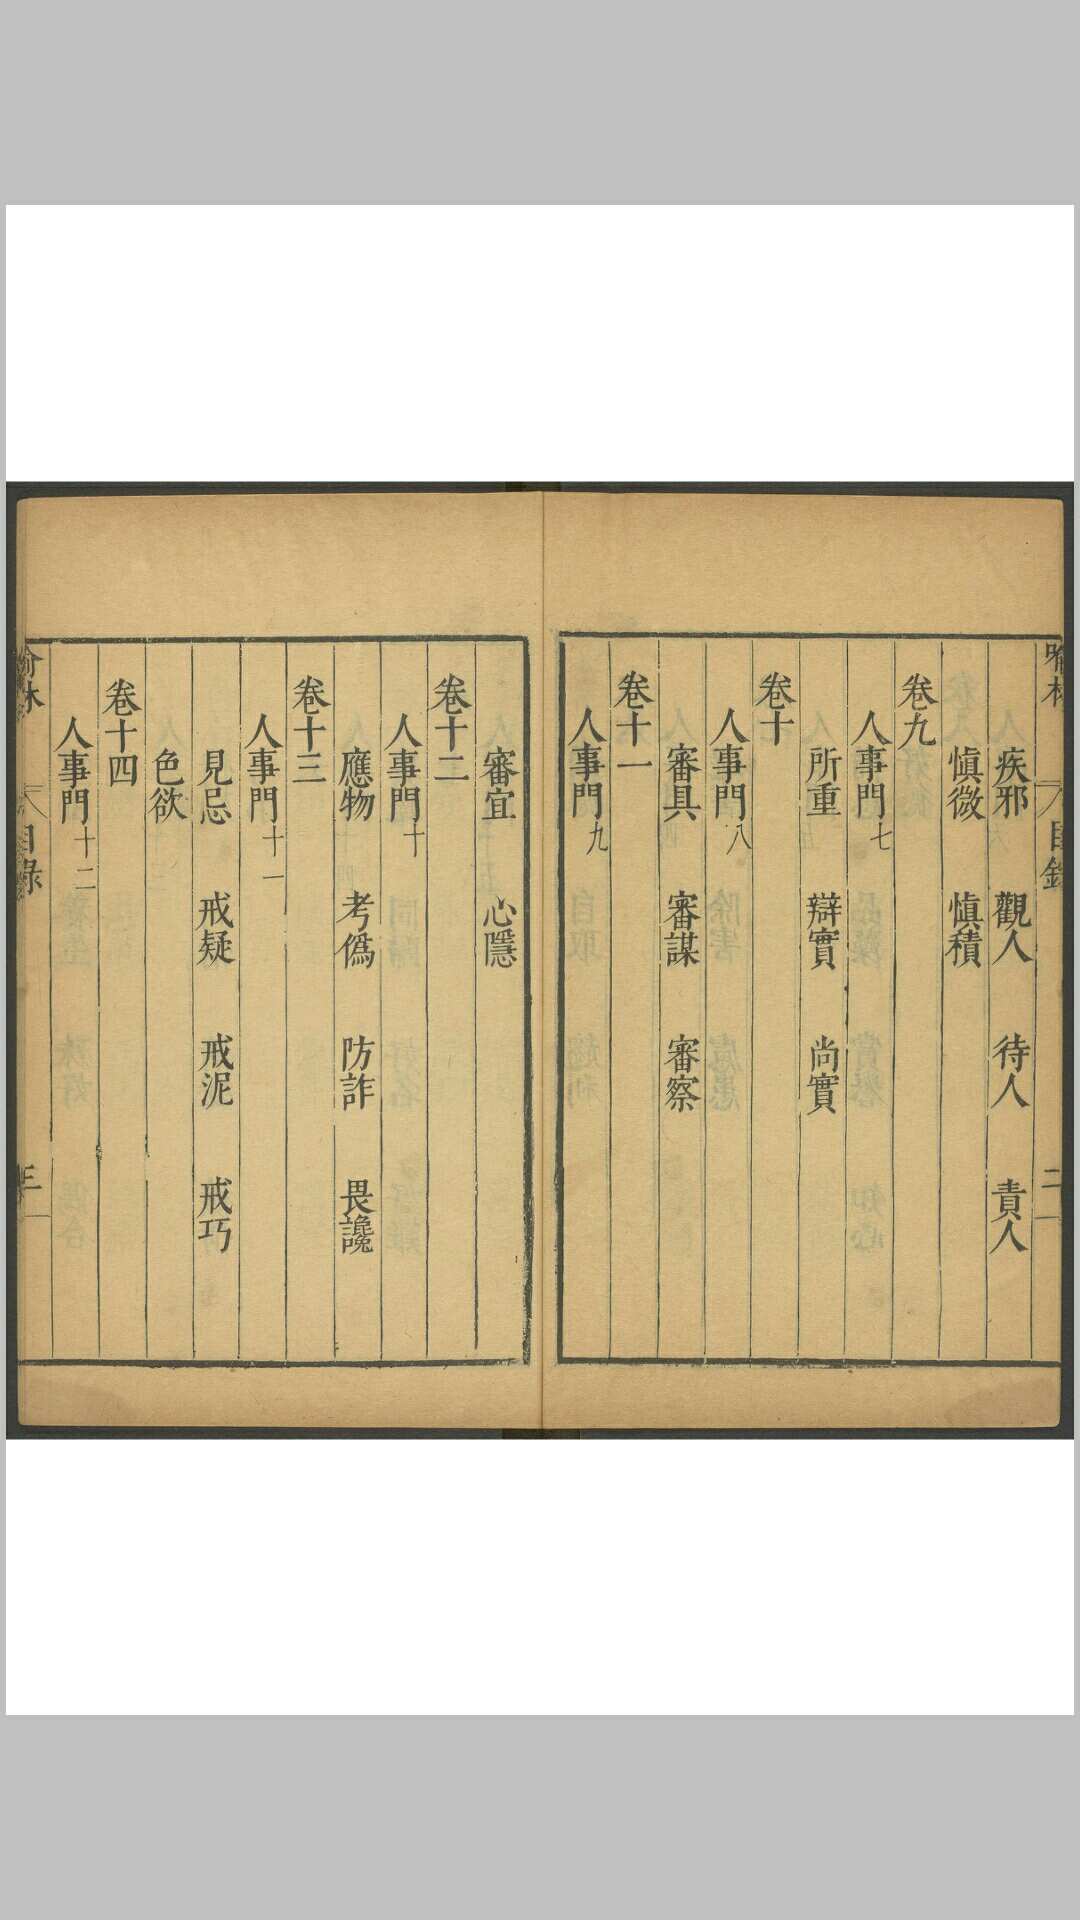 喻林 目錄 二
疾邪 觀人 待人 責人
慎微 慎積
卷九
人事門七
所重 辯實 尚實
卷十
人事門八
審具 審謀 審察
卷十一
人事門九
審宜 心隱
卷十二
人事門十
應物 考僞 防詐 畏讒
卷十三
人事門十一
見忌 戒疑 戒泥 戒巧
色欲
卷十四
人事門十二
喻林 目錄 三